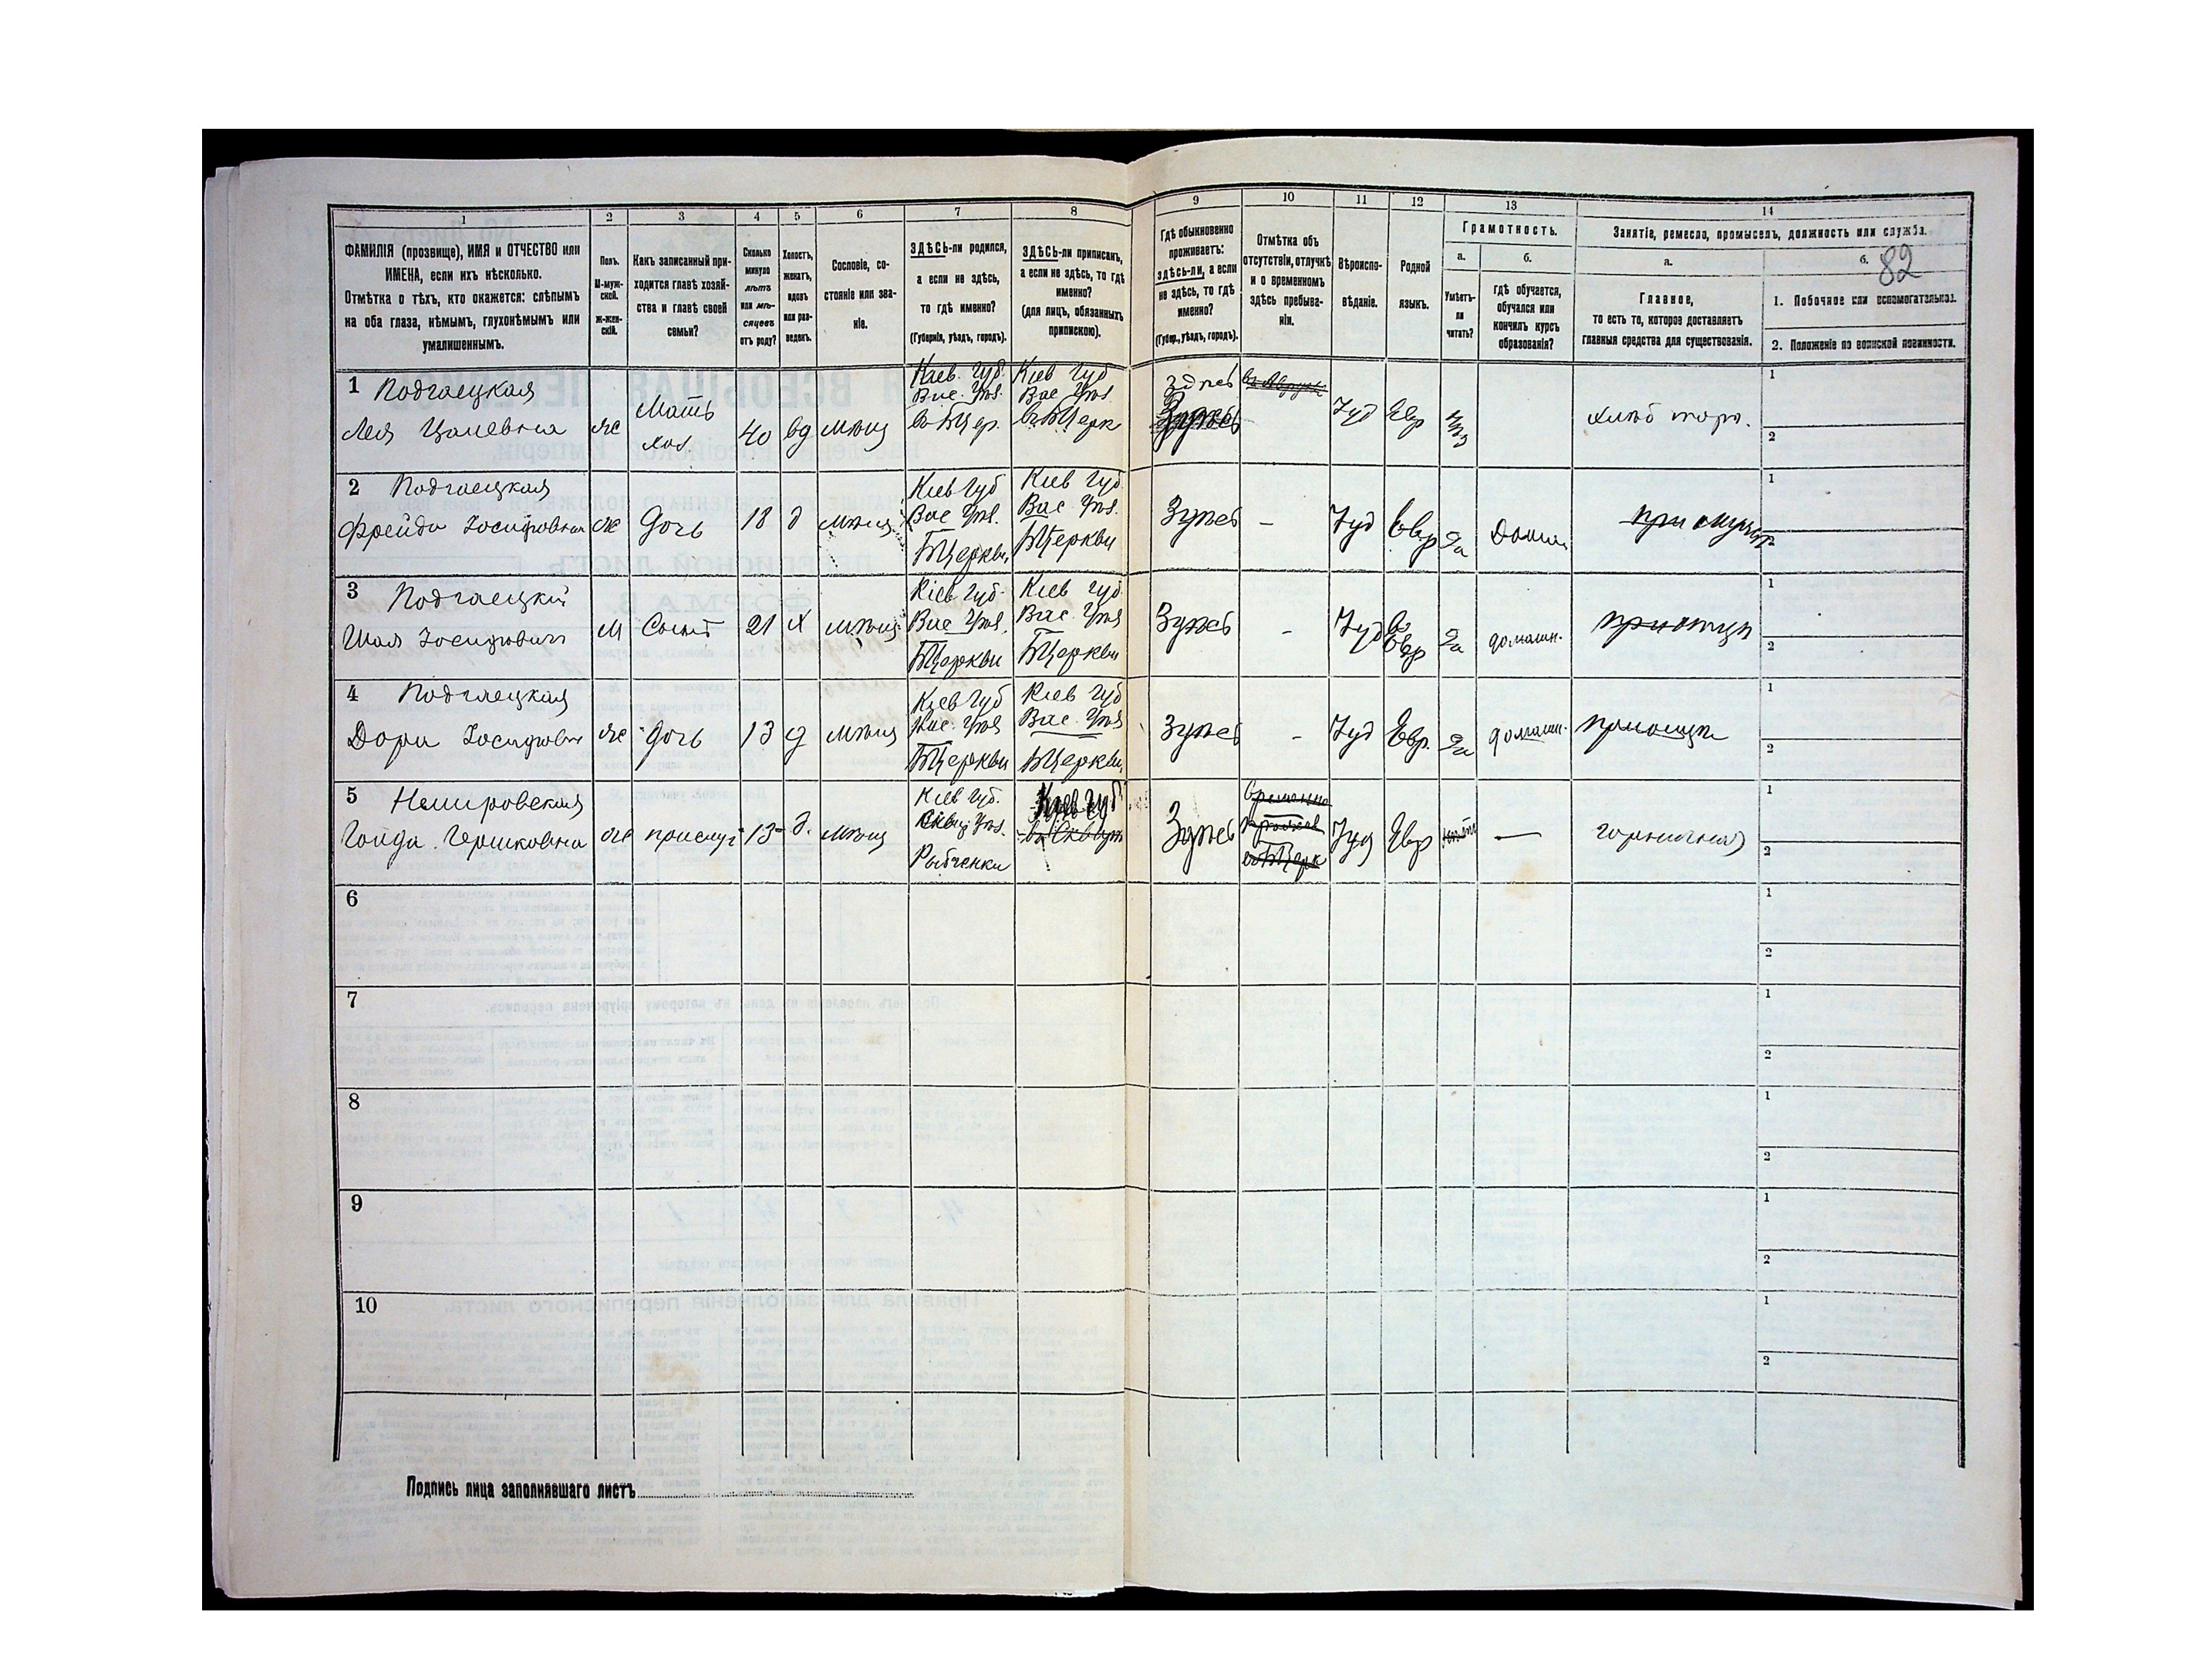 82
1 2 3 4 5 6 7 8 9 10 11 12 13 14
ФАМИЛІЯ (прозвище), ИМЯ и ОТЧЕСТВО или
ИМЕНА, если ихъ нѣсколько.
Отмѣтка о тѣхъ, кто окажется: слѣпымъ
на оба глаза, нѣмымъ, глухонѣмымъ или
умалишеннымъ.
Полъ.
М-муж-
ской.
ж-жен-
скій.
Какъ записанный при-
ходится главѣ хозяй-
ства и главѣ своей
семьи?
Сколько
минуло
лѣтъ
или мѣ-
сяцевъ
отъ роду?
Холостъ,
женатъ,
вдовъ
или раз-
веденъ.
Сословіе, со-
стояніе или зва-
ніе.
ЗДѢСЬ-ли родился,
а если не здѣсь,
то гдѣ именно?
(Губернія, уѣздъ, городъ).
ЗДѢСЬ-ли приписанъ,
а если не здѣсь, то гдѣ
именно?
(для лицъ, обязанныхъ
припискою).
Гдѣ обыкновенно
проживаетъ:
здѣсь-ли, а если
не здѣсь, то гдѣ
именно?
(Губер., уѣздъ, городъ).
Отмѣтка объ
отсутствіи, отлучкѣ
и о временномъ
здѣсь пребыва-
ніи.
Вѣроиспо-
вѣданіе.
Родной
языкъ.
Грамотность.
а.
Умѣетъ-
ли
читать?
б.
гдѣ обучается,
обучался или
кончилъ курсъ
образованія?
Занятіе, ремесло, промыселъ, должность или служба.
а.
Главное,
то есть то, которое доставляетъ
главныя средства для существованія.
б.
1. Побочное или вспомогательное.
2. Положеніе по воинской повинности.
1 Подгаецкая
Лея
ж
Мать
хоз.
40 вд мѣщ
Кіев. Губ.
Вас. Уѣз.
Кіев Губ
Вас Уѣз.
Здѣсь
Іуд Евр
1
2
2 Подгаецкая
Фрейда Іосифовна ж Дочь 18 д мѣщ.
Кіев Губ
Вас Уѣз.
БЦеркви
Кіев Губ.
Вас. Уѣз.
БЦеркви
Здѣсь - Іуд Евр да
1
2
3 Подгаецкій
Шая Іосифовичъ М Сынъ 21 х мѣщ.
Кіев Губ.
Вас Уѣз.
БЦеркви
Кіев Губ.
Вас Уѣз
БЦеркви
Здѣсь - Іуд Евр да домашн.
1
2
4 Подгаецкая
Іосифовн ж Дочь 13 д мѣщ
Кіев Губ
Вас. Уѣз
БЦеркви
Кіев Губ
Вас. Уѣз
БЦеркви
Здѣсь - Іуд Евр. да домашн.
1
2
5 Немировская
Гершковна ж прислуг 13 д. мѣщ
Кіев Губ.
Сквир Уѣз.
Рыбченки
Кіев Губ
Здѣсь
временно
Іуд Евр нѣтъ — горничная
1
2
6
1
2
7
1
2
8
1
2
9
1
2
10
1
2
Подпись лица заполнявшаго листъ